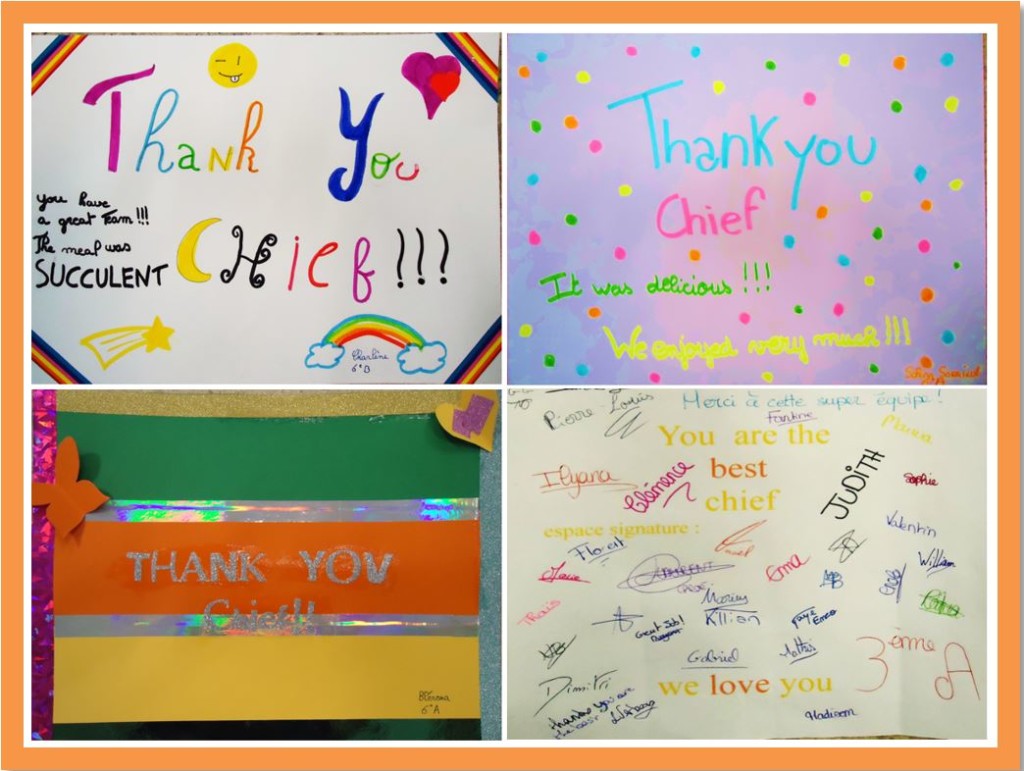 Thank You
you have
a great Team!!!
The meal was
SUCCULENT
CHief!!!
Charlène
6°B
Thank you
Chief
It was delicious!!!
We enjoyed very much!!!
THANK YOU
Chief!!
6°A
Pierre-Louis
Merci à cette super équipe!
Fantine
You are the
best
chief
Ilyana
Clemence
JUDITH
Sophie
espace signature :
Valentin
Florent
William
Emma
Marius
Killian
Great Job!
Gabriel
Mathis
3ème A
Dimitri
we love you
thanks you are
the best
Madison